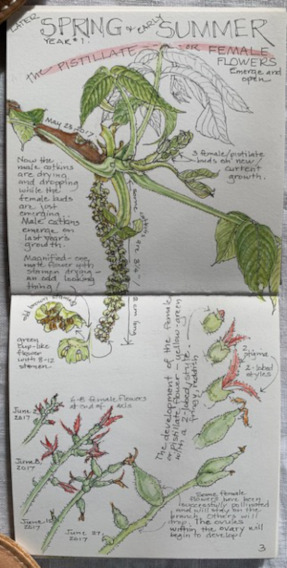 LATER
SPRING & EARLY SUMMER
YEAR #1.
the PISTILLATE --- OR FEMALE
FLOWERS
Emerge and
open
May 23 2017
3 female/pistilate
buds on new/
current
growth.
Now the
male catkins
are drying
and dropping
while the
female buds
are just
emerging.
Male catkins
emerge on
last year's
growth.
Magnified - one
male flower with
stamen drying -
an odd looking
thing!
green
cup-like
flower
with 8-12
stamen.
The development of the female
pistillate flower - yellow-green
with a 2-lobed style.
2-lobed
styles
6-8 female flowers
at end of axis
June
2017
June 8,
2017
June
2017
June 27,
2017
Some female
flowers have been
successfully pollinated
and will stay on the
branch. Others will
drop. The ovules
within the ovary will
begin to develop!
3